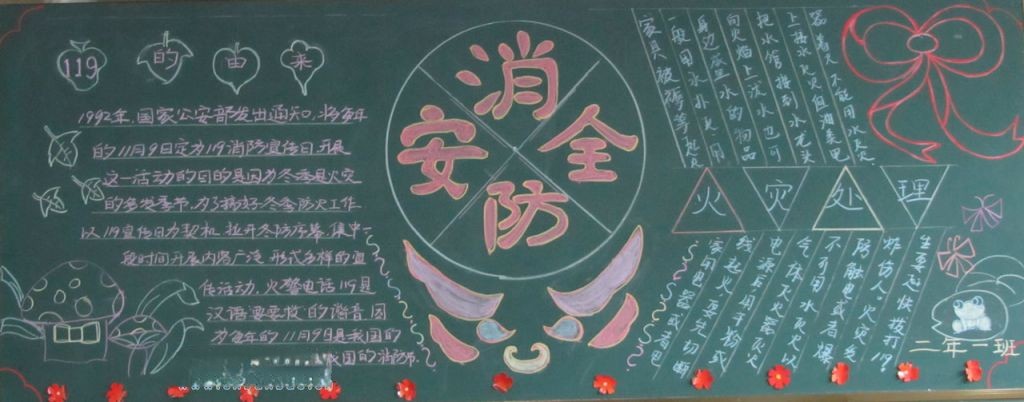 119的由来
1992年,国家公安部发出通知,将每年
的11月9日定为119消防宣传日,开展
这一活动的目的是因为冬季是火灾
的多发季节,为了搞好冬季防火工作
以119宣传日为契机,拉开冬防序幕,集中一
段时间开展内容广泛,形式多样的宣
传活动,火警电话119是
汉语要要救的谐音,因
为每年的11月9日是我国的
我国的消防节
消
安 全
防
家具被褥等起火
一般用水扑灭用
身边盛水的物品
向火焰上泼水也可
把水管接到水龙头
上喷水灭火
火灾处理
家用电器或者电
线起火要先切断
电源后用干粉或
气体灭火器灭火
不可用水灭火以
防触电或者爆
炸伤人。火灾发
生要赶快拨打119
二年一班